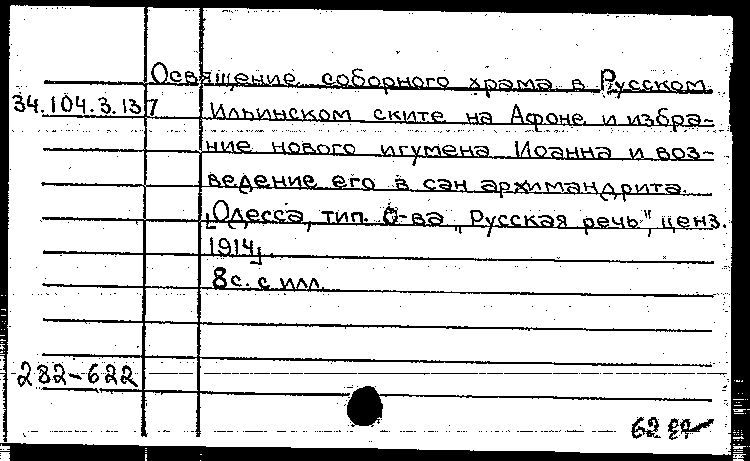 Освящение соборного храма в Русском
34.104.3.137 Ильинском ските на Афоне и избра-
ние нового игумена Иоанна и воз-
ведение его в сан архимандрита.
[Одесса, тип. О-ва „Русская речь", ценз.
1914].
8 с. с илл.
282-622
62